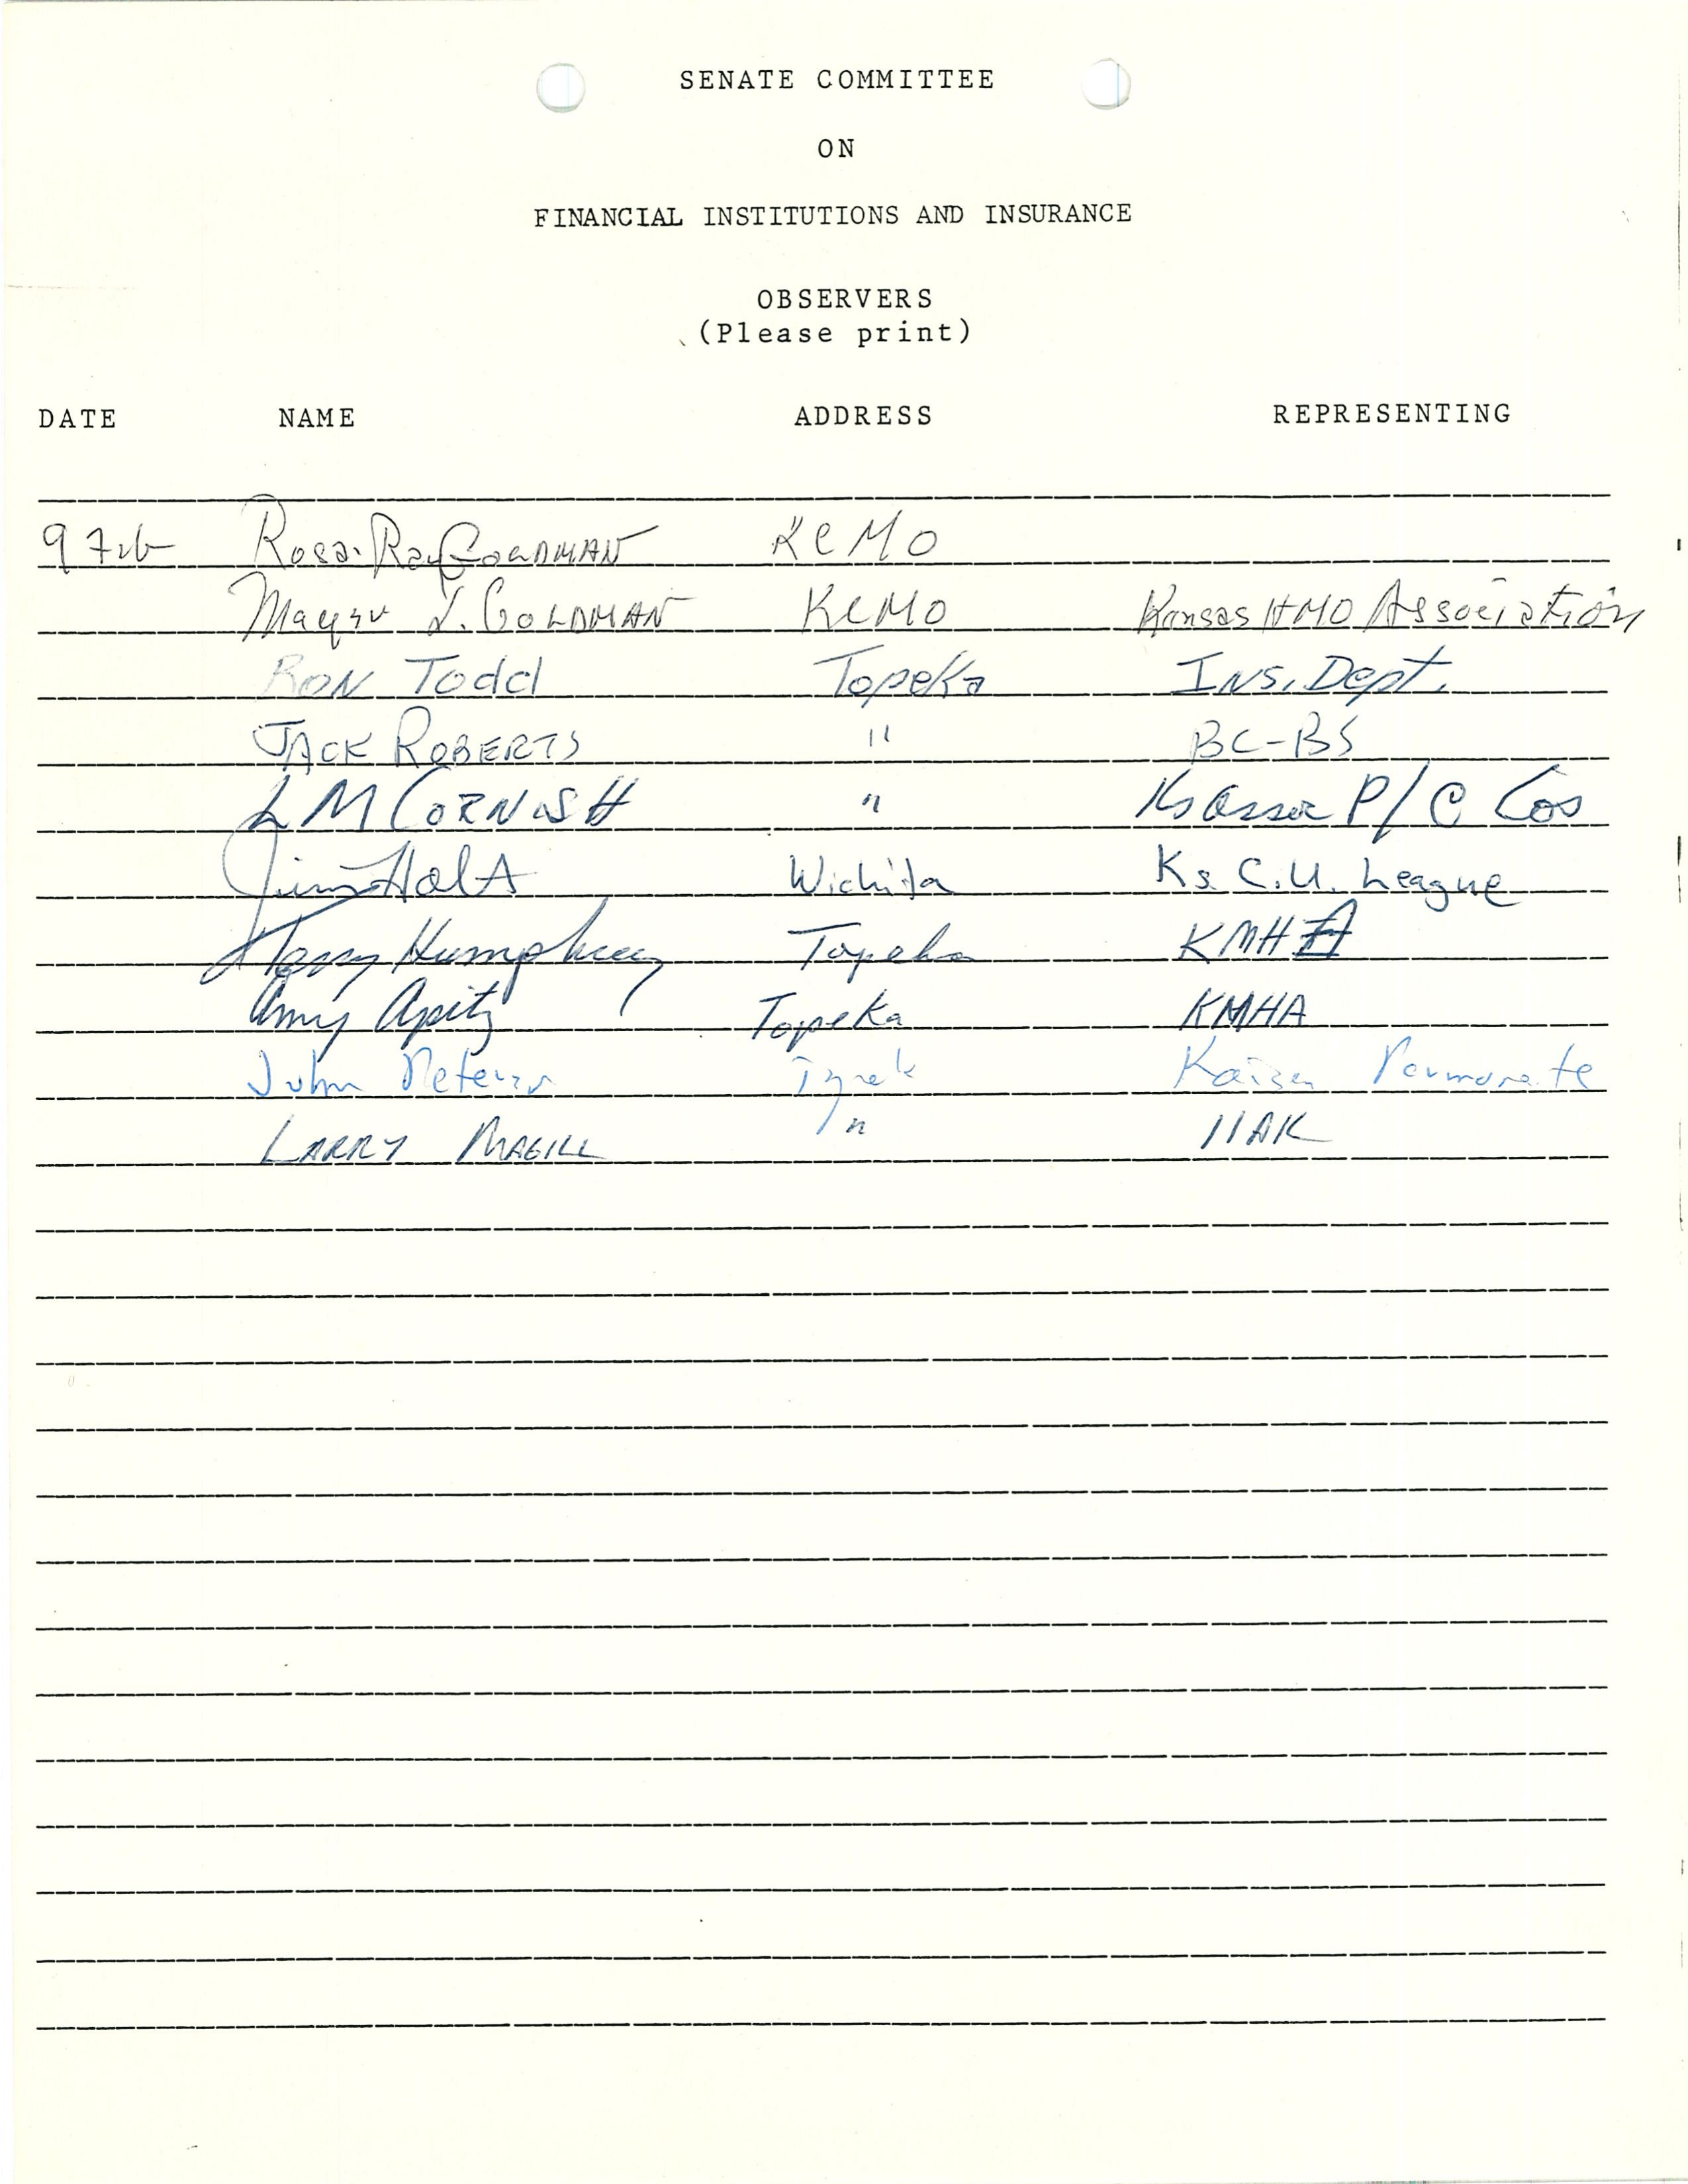 SENATE COMMITTEE
ON
FINANCIAL INSTITUTIONS AND INSURANCE
OBSERVERS
(Please print)
DATE NAME ADDRESS REPRESENTING
9 Feb Rosa Ray GOLDMAN KCMO
L. GOLDMAN KCMO Kansas HMO Association
RON Todd Topeka INS. Dept.
JACK ROBERTS " BC-BS
L M CORNISH " Ks Assoc P/C Cos
Jim Holt Wichita Ks. C.U. League
Terry Humphrey Topeka KMHA
Amy Apitz Topeka KMHA
John Peterson Kaiser
LARRY MAGILL " IIAK